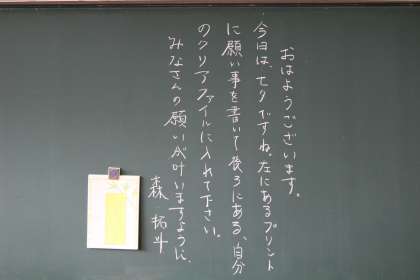 おはようございます。
今日は、七夕ですね。左にあるプリント
に願い事を書いて後ろにある、自分
のクリアファイルに入れて下さい。
みなさんの願いが叶いますように、
森 拓斗